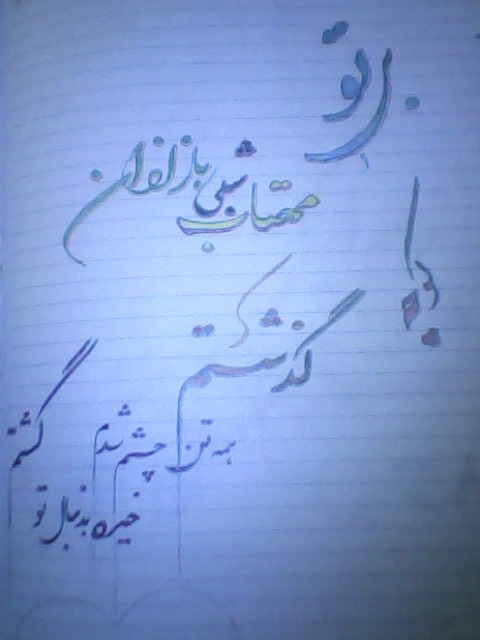 بی تو
مهتاب شبی باز ازان
کوچه
گذشتم
همه تن چشم شدم
خیره بدنبال تو
گشتم